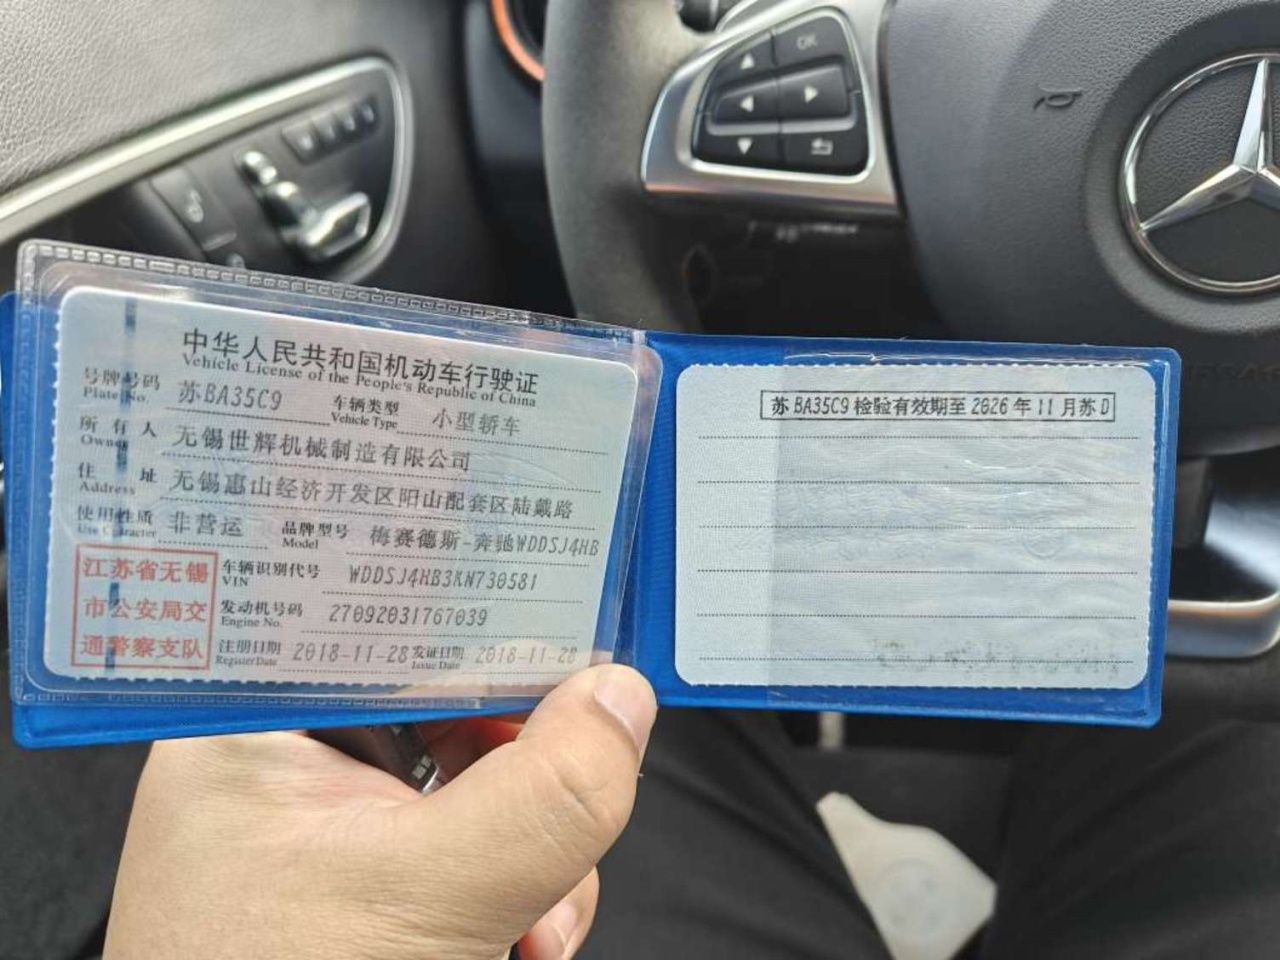 OK
中华人民共和国机动车行驶证
Vehicle License of the People's Republic of China
号牌号码 苏BA35C9 车辆类型 小型轿车
Plate No. Vehicle Type
所有人 无锡世辉机械制造有限公司
Owner
住址 无锡惠山经济开发区阳山配套区陆戴路
Address
使用性质 非营运 品牌型号 梅赛德斯-奔驰WDDSJ4HB
Use Character Model
江苏省无锡
市公安局交
通警察支队
车辆识别代号 WDDSJ4HB3KN730581
VIN
发动机号码 27092031767039
Engine No.
注册日期 2018-11-28 发证日期 2018-11-28
Register Date Issue Date
苏BA35C9检验有效期至2026年11月苏D